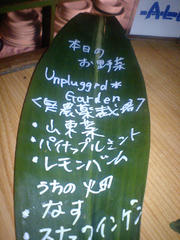 本日の
お野菜
Unpluggrd*
Garden
<無農薬栽培>
・山東菜
・パイナップルミント
・レモンバーム
うちの畑
なす
・スナックインゲン